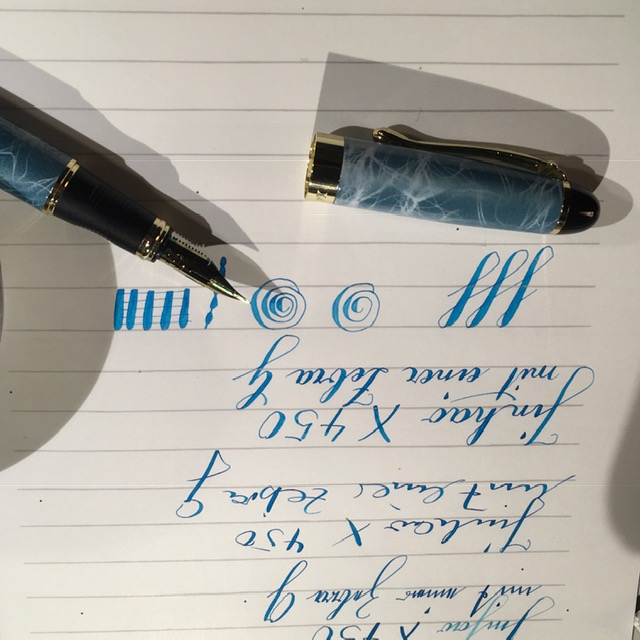 Jinhao X 450
mit einer Zebra G
Jinhao X 450
mit einer Zebra G
Jinhao X 450
mit einer Zebra G